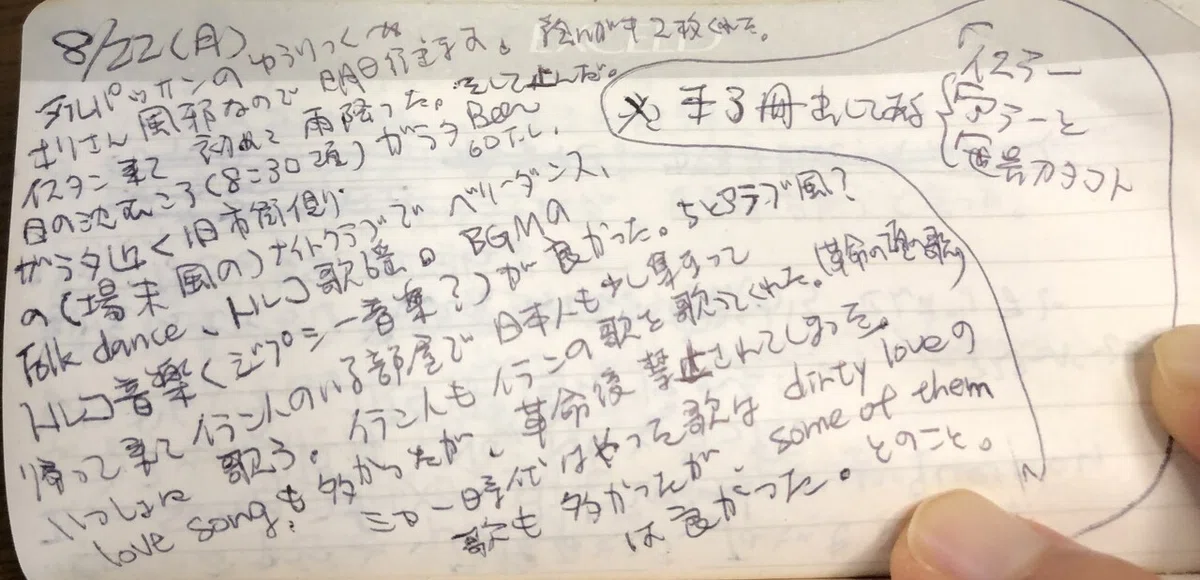 8/22(月)
絵はがき2枚くれた。
ダルパッサンのゆうりっくが
ホリさん風邪なので明日行きます。
イスタン来て初めて雨降った。そして止んだ。
日の沈むころ(8:30頃)ガラタ Beer 60T.L.
ガラタ近く旧市街側
の(場末風の)ナイトクラブでベリーダンス、
Folk dance、トルコ歌謡。BGMの
トルコ音楽(ジプシー音楽?)が良かった。ちとアラブ風?
帰って来てイラン人のいる部屋で日本人も少し集まって
いっしょに歌う。イラン人もイランの歌を歌ってくれた。(革命の頃の歌)
love songも多かったが、革命後禁止されてしまった。
ミロ一時代はやった歌は dirty loveの
歌も多かったが、some of them
は良かった。とのこと。
冊出してある